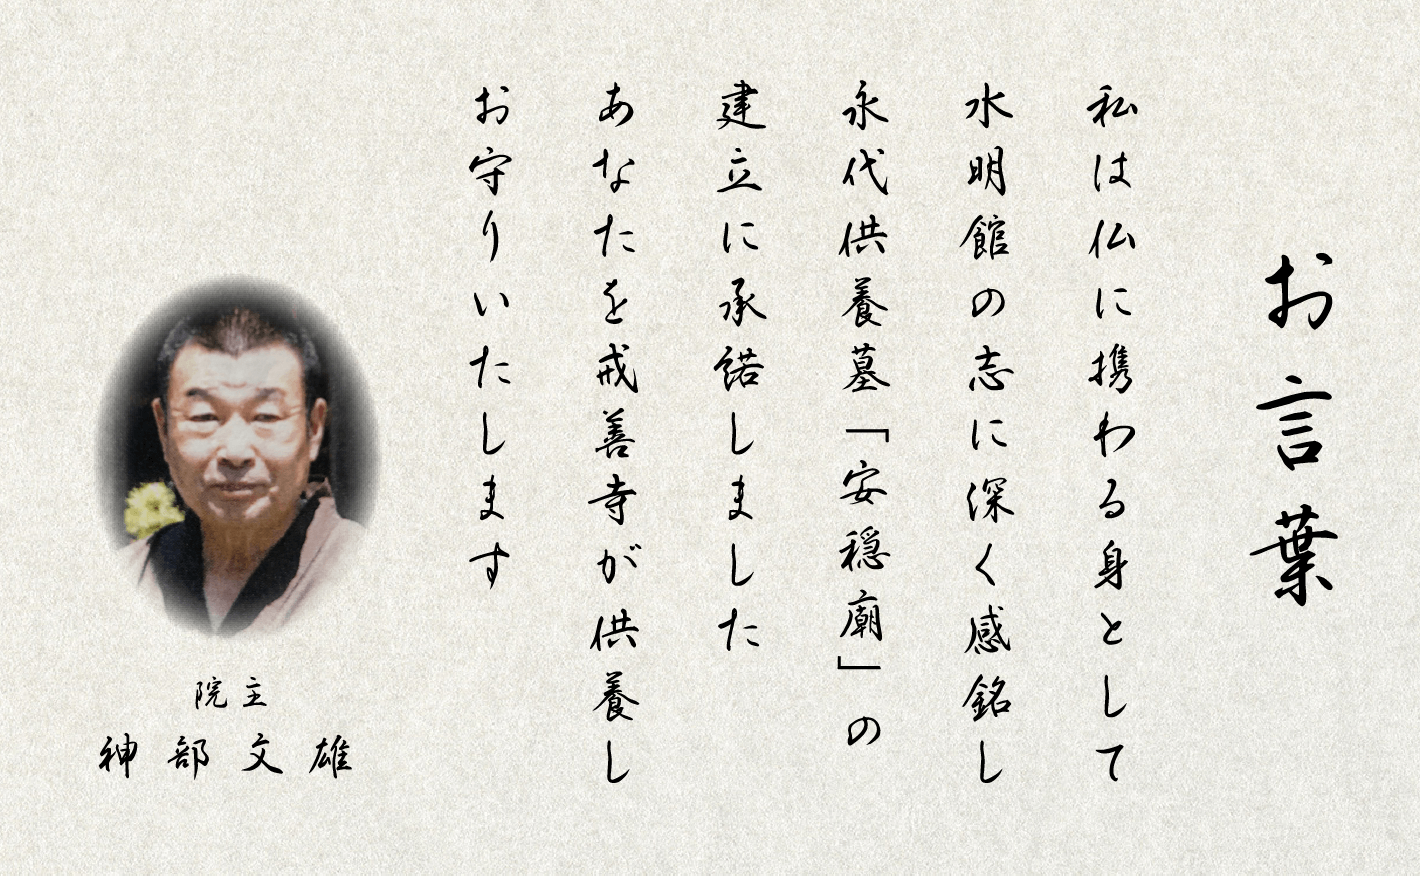 お言葉
私は仏に携わる身として
水明館の志に深く感銘し
永代供養墓「安穏廟」の
建立に承諾しました
あなたを戒善寺が供養し
お守りいたします
院主
神部文雄